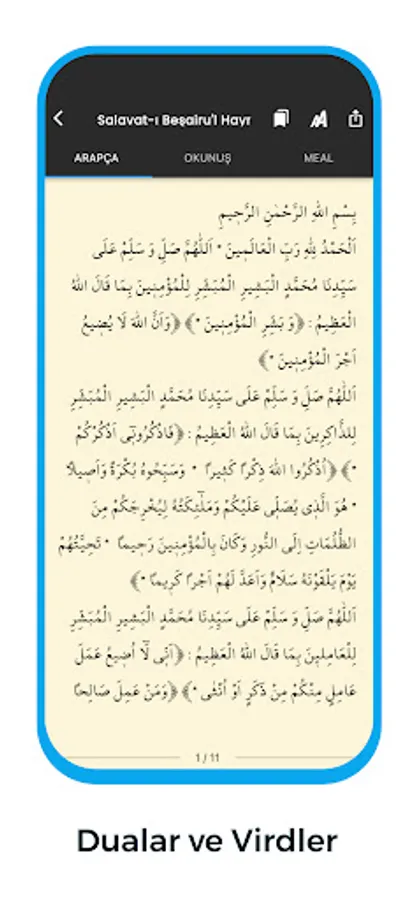 Salavat-ı Beşairu'l Hayr
ARAPÇA OKUNUŞ MEAL
بِسْمِ اللهِ الرَّحْمٰنِ الرَّحٖيمِ
اَلْحَمْدُ لِلهِ رَبِّ الْعَالَمٖينَ * اَللّٰهُمَّ صَلِّ وَ سَلِّمْ عَلَى
سَيِّدِنَا مُحَمَّدٍ الْبَشٖيرِ الْمُبَشِّرِ لِلْمُؤْمِنٖينَ بِمَا قَالَ اللهُ
الْعَظٖيمُ : ﴿وَ بَشِّرِ الْمُؤْمِنٖينَ *﴾ ﴿وَاَنَّ اللهَ لَا يُضٖيعُ
اَجْرَ الْمُؤْمِنٖينَ *﴾
اَللّٰهُمَّ صَلِّ وَ سَلِّمْ عَلَى سَيِّدِنَا مُحَمَّدٍ الْبَشٖيرِ الْمُبَشِّرِ
لِلذَّاكِرٖينَ بِمَا قَالَ اللهُ الْعَظٖيمُ : ﴿فَاذْكُرُونٖٓى اَذْكُرْكُمْ
*﴾ ﴿اُذْكُرُوا اللهَ ذِكْرًا كَثٖيرًا * وَسَبِّحُوهُ بُكْرَةً وَاَصٖيلًا
* هُوَ الَّذٖى يُصَلّٖى عَلَيْكُمْ وَمَلٰٓئِكَتُهُ لِيُخْرِجَكُمْ مِنَ
الظُّلُمَاتِ اِلَى النُّورِ وَكَانَ بِالْمُؤْمِنٖينَ رَحٖيمًا * تَحِيَّتُهُمْ
يَوْمَ يَلْقَوْنَهُ سَلَامٌ وَاَعَدَّ لَهُمْ اَجْرًا كَرٖيمًا *﴾
اَللّٰهُمَّ صَلِّ وَ سَلِّمْ عَلَى سَيِّدِنَا مُحَمَّدٍ الْبَشٖيرِ الْمُبَشِّرِ
لِلْعَامِلٖينَ بِمَا قَالَ اللهُ الْعَظٖيمُ : ﴿اَنّٖى لَٓا اُضٖيعُ عَمَلَ
عَامِلٍ مِنْكُمْ مِنْ ذَكَرٍ اَوْ اُنْثٰى *﴾ ﴿وَمَنْ عَمِلَ صَالِحًا
1 / 11
Dualar ve Virdler